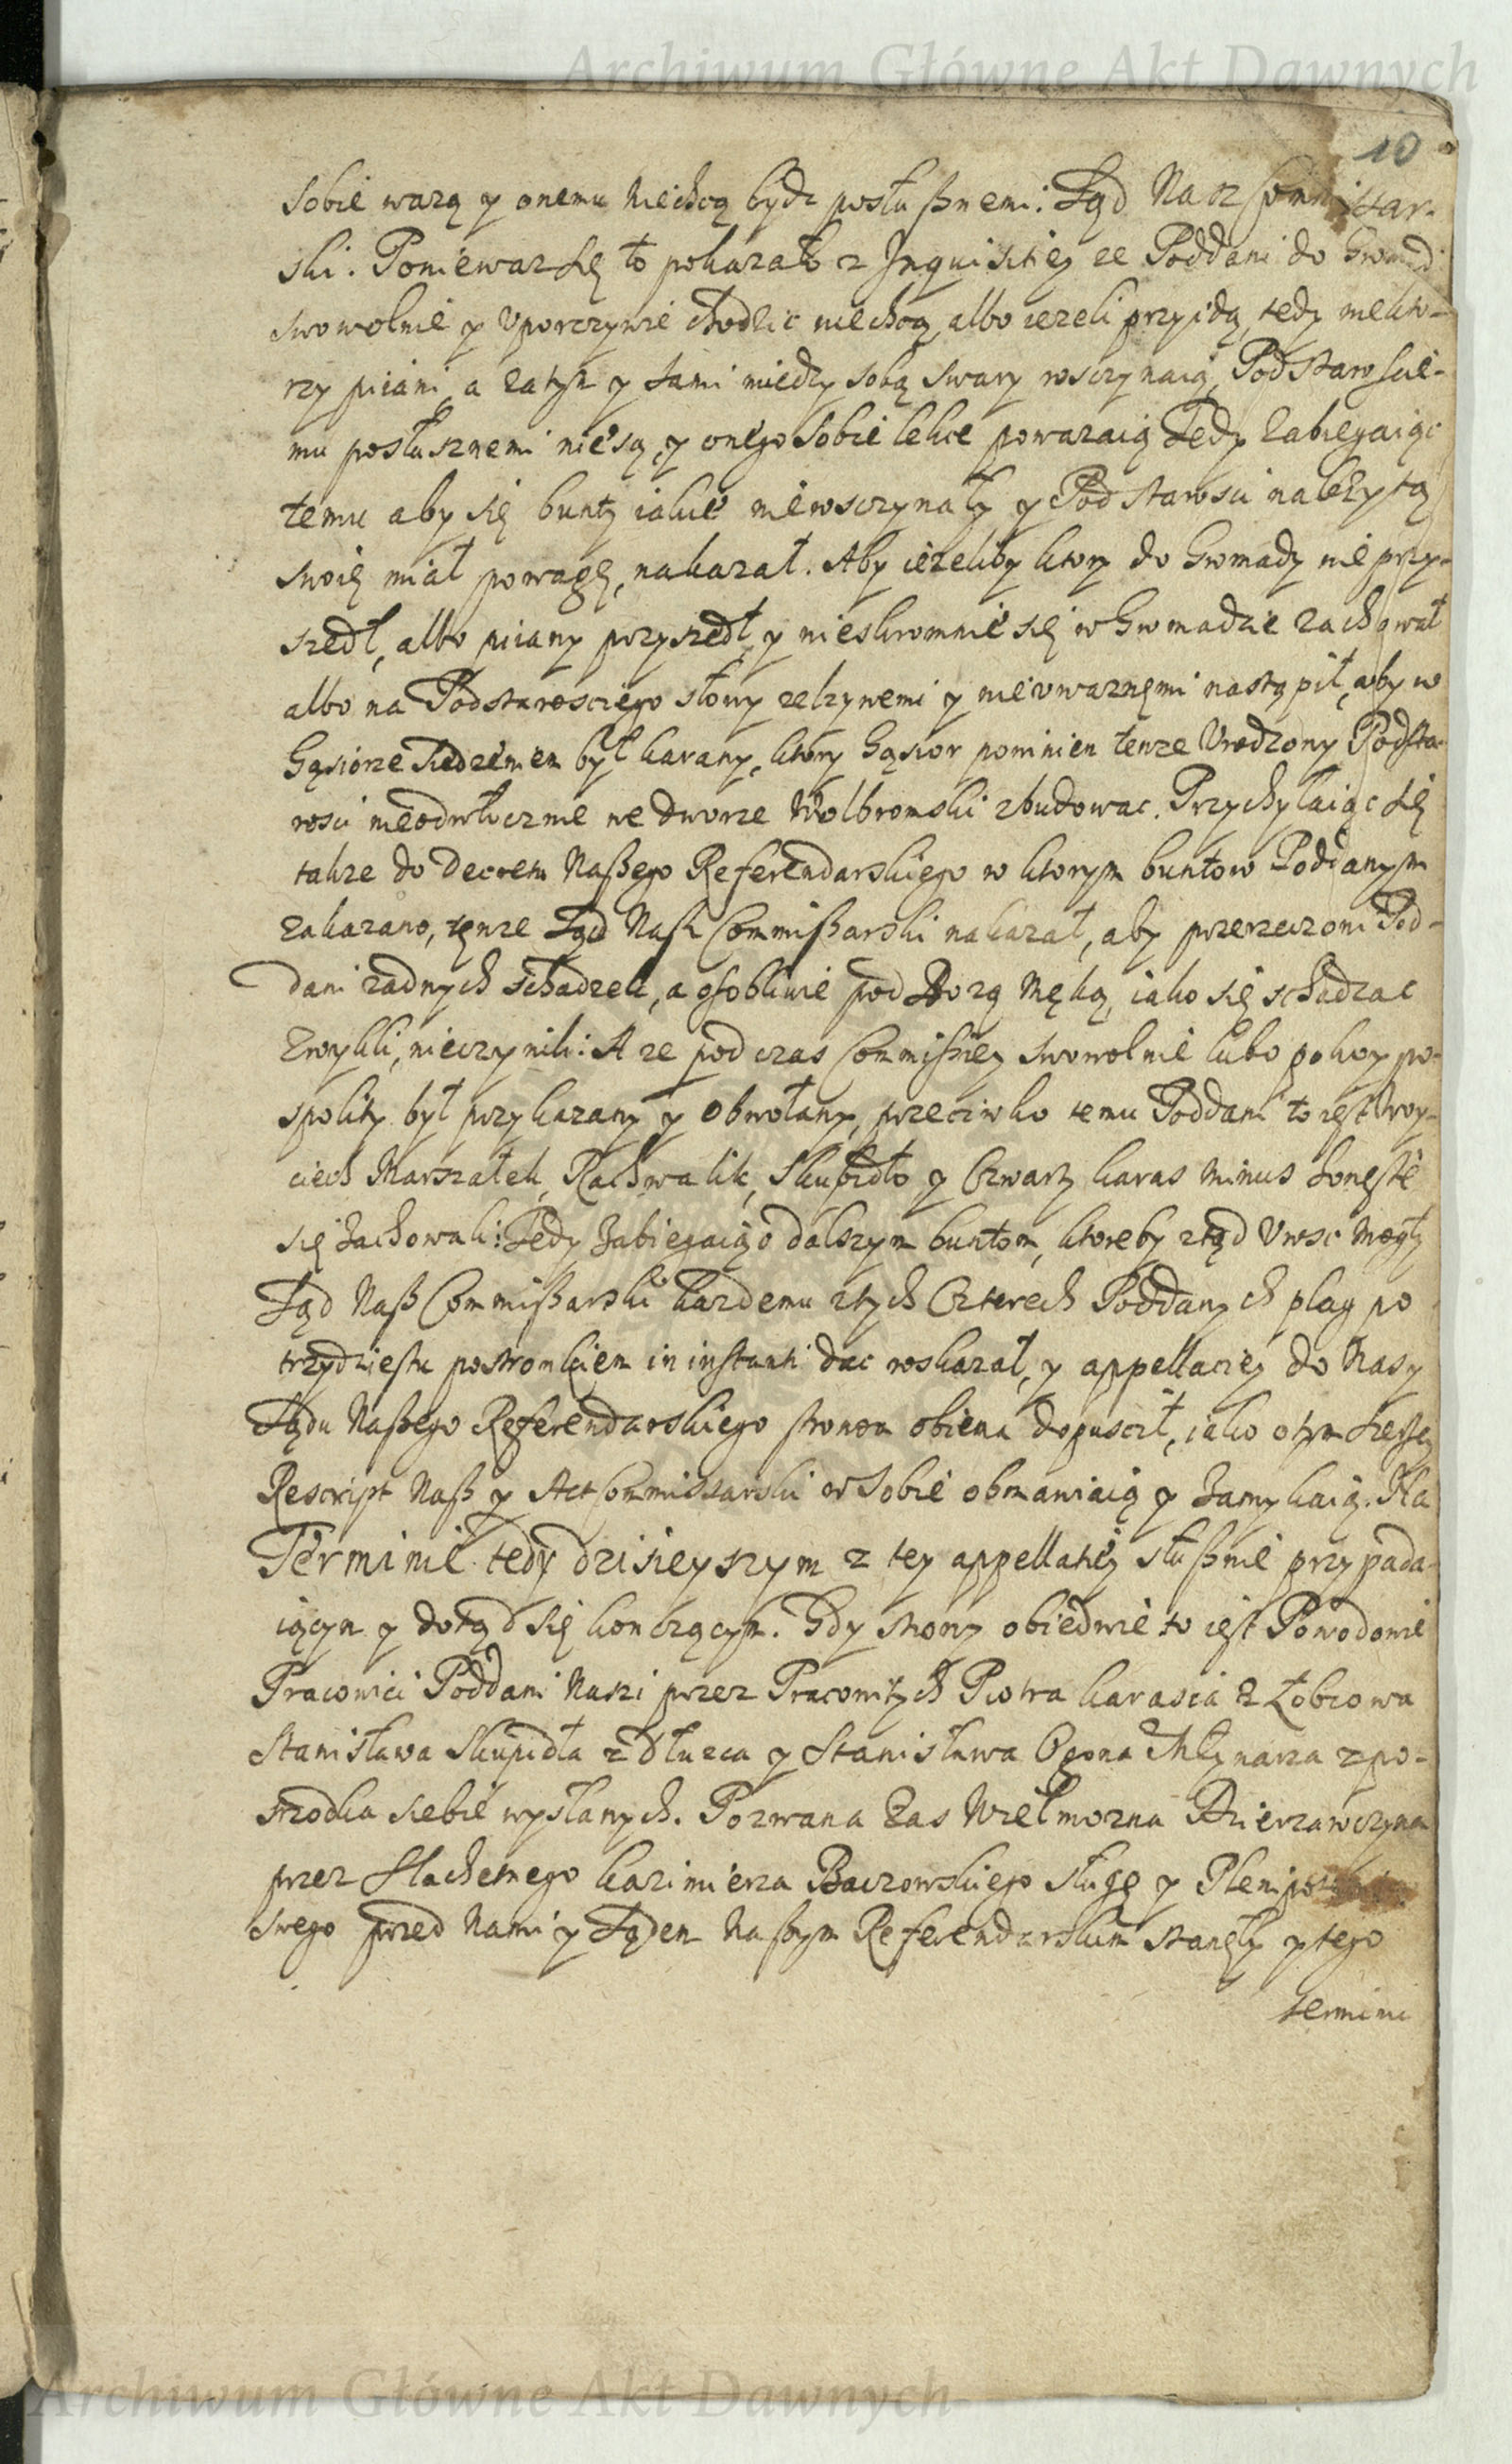 Archiwum Główne Akt Dawnych
10
sobie wazą y onemu niechcą bydz posłusznemi: Sąd Nasz Commissar-
ski. Poniewaz się to pokazało z Inquisitiey ze Poddani do Gromady
swowolnie y vporczywie chodzic niechcą, albo iezeli przyidą, tedy niekto-
rzy piiani, a zatym y sami miedzy sobą swary wsczynaią, Podstarscie-
mu posłusznemi niesą, y onego sobie lekce powazaią Tedy zabiegaiąc
temu aby się bunty iakie niewsczynały y Podstarsci nalezytą
swoię miał powagę, nakazał. Aby iezeliby ktory do Gromady nie przy-
szedł, albo piiany przyszedł, y nieskromnie się w Gromadzie zachował
albo na Podstarosciego słowy zelzywemi y nieuwaznęmi nastąpił, aby w
Gąsiorze siedzeniem był karany, ktory Gąsior powinien tenze Vrodzony Podsta-
rosci nieodwłocznie we dworze Wolbromski zbudowac. Przychylaiąc się
takze do Decretu Naszego Referendarskiego w ktorym buntow Poddanym
zakazano, tenze Sąd Nasz Commissarski nakazał, aby przerzeczoni Pod-
dani zadnych schadzek, a osobliwie pod Bozą Męką, iako się schadzac
zwykli, nieczynili: A ze pod czas Commissiey swowolnie lubo pokoy po-
spolity był przykazany y obwołany, przeciwko temu Poddani to iest Woy-
ciech Marszałek, Rachwalik, Skupidło y Czwarty Karas minus honeste
się zachowali: Tedy zabiegaiąc dalszym buntom, ktoreby ztąd vrosc mogły
Sąd Nasz Commissarski kazdemu ztych Czterech Poddanych plag po
trzydziestu postronkiem in instanti dac roskazał, y appellaciey do Nas y
Sądu Naszego Referendarskiego stronom obiema dopuscił, iako o tym szerzey
Rescript Nasz y Act Commissarski w sobie obmawiaią y zamykaią. Na
Terminie tedy dzisieyszym z tey appellatiey słusznie przypada-
iącym y dotąd się konczącym. Gdy strony obiedwie to iest Powodowie
Pracowici Poddani Naszi przez Pracowitych Piotra Karasia z Łobzowa
Stanisława Skupidła z Dłuzca y Stanisława Ogona Młynarza z po-
srzodka siebie wysłanych. Pozwana zas Wielmozna Dzierzawczyna
przez Slachetnego Kazimierza Baczowskiego sługę y
swego przed Nami y Sądem Naszym Referendarskim stanęły y tego
termini
Archiwum Główne Akt Dawnych